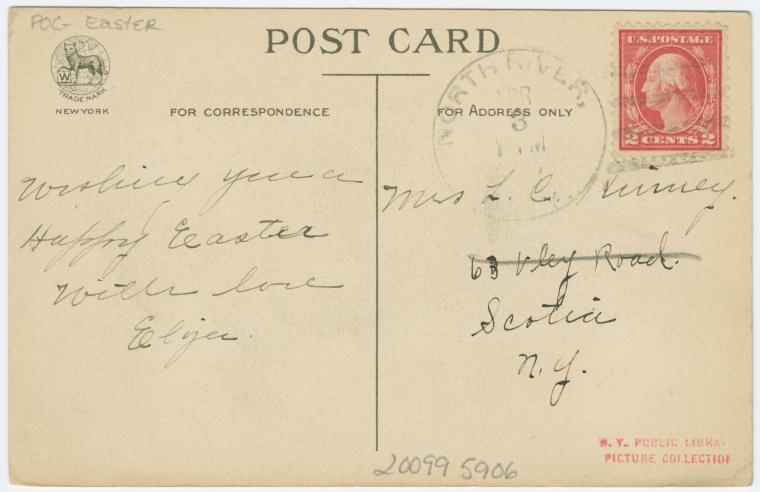 POC- Easter
POST CARD
W
TRADE MARK
NEW YORK
FOR CORRESPONDENCE
FOR ADDRESS ONLY
NORTH RIVER,
3
M
U.S. POSTAGE
2 CENTS 2
Wishing you a
Happy Easter
With love
Mrs L. C. Kinney.
63 Vley Road.
Scotia
N.Y.
N. Y. PUBLIC LIBRA
PICTURE COLLECTION
20099 5906